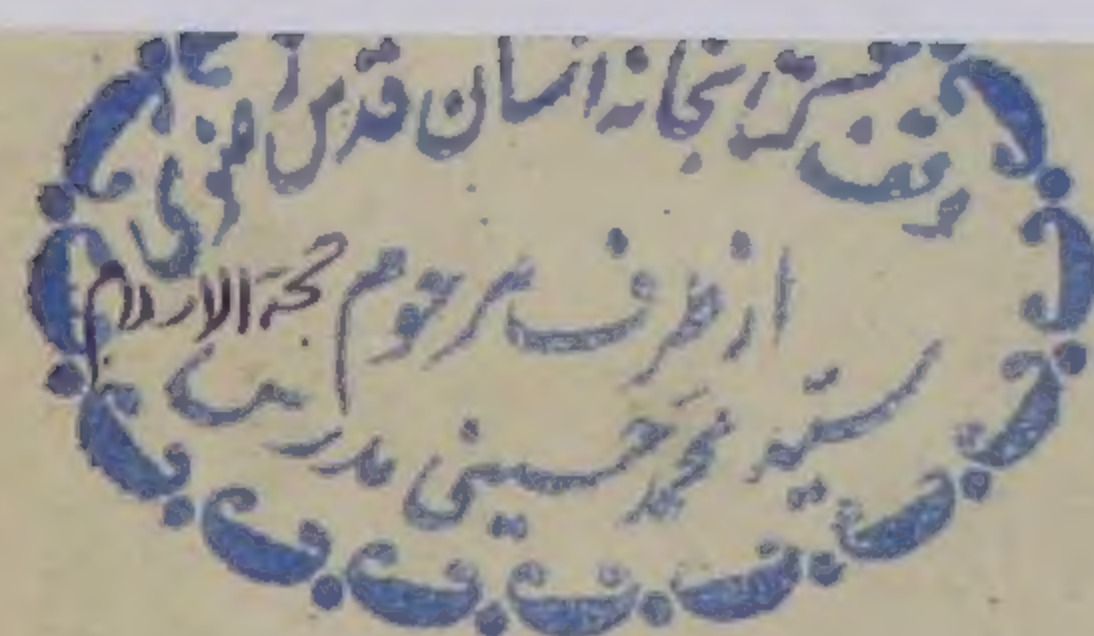 وقف کتابخانه آستان قدس رضوی
از طرف مرحوم حجة الاسلام
سید محمد حسینی مدرسی